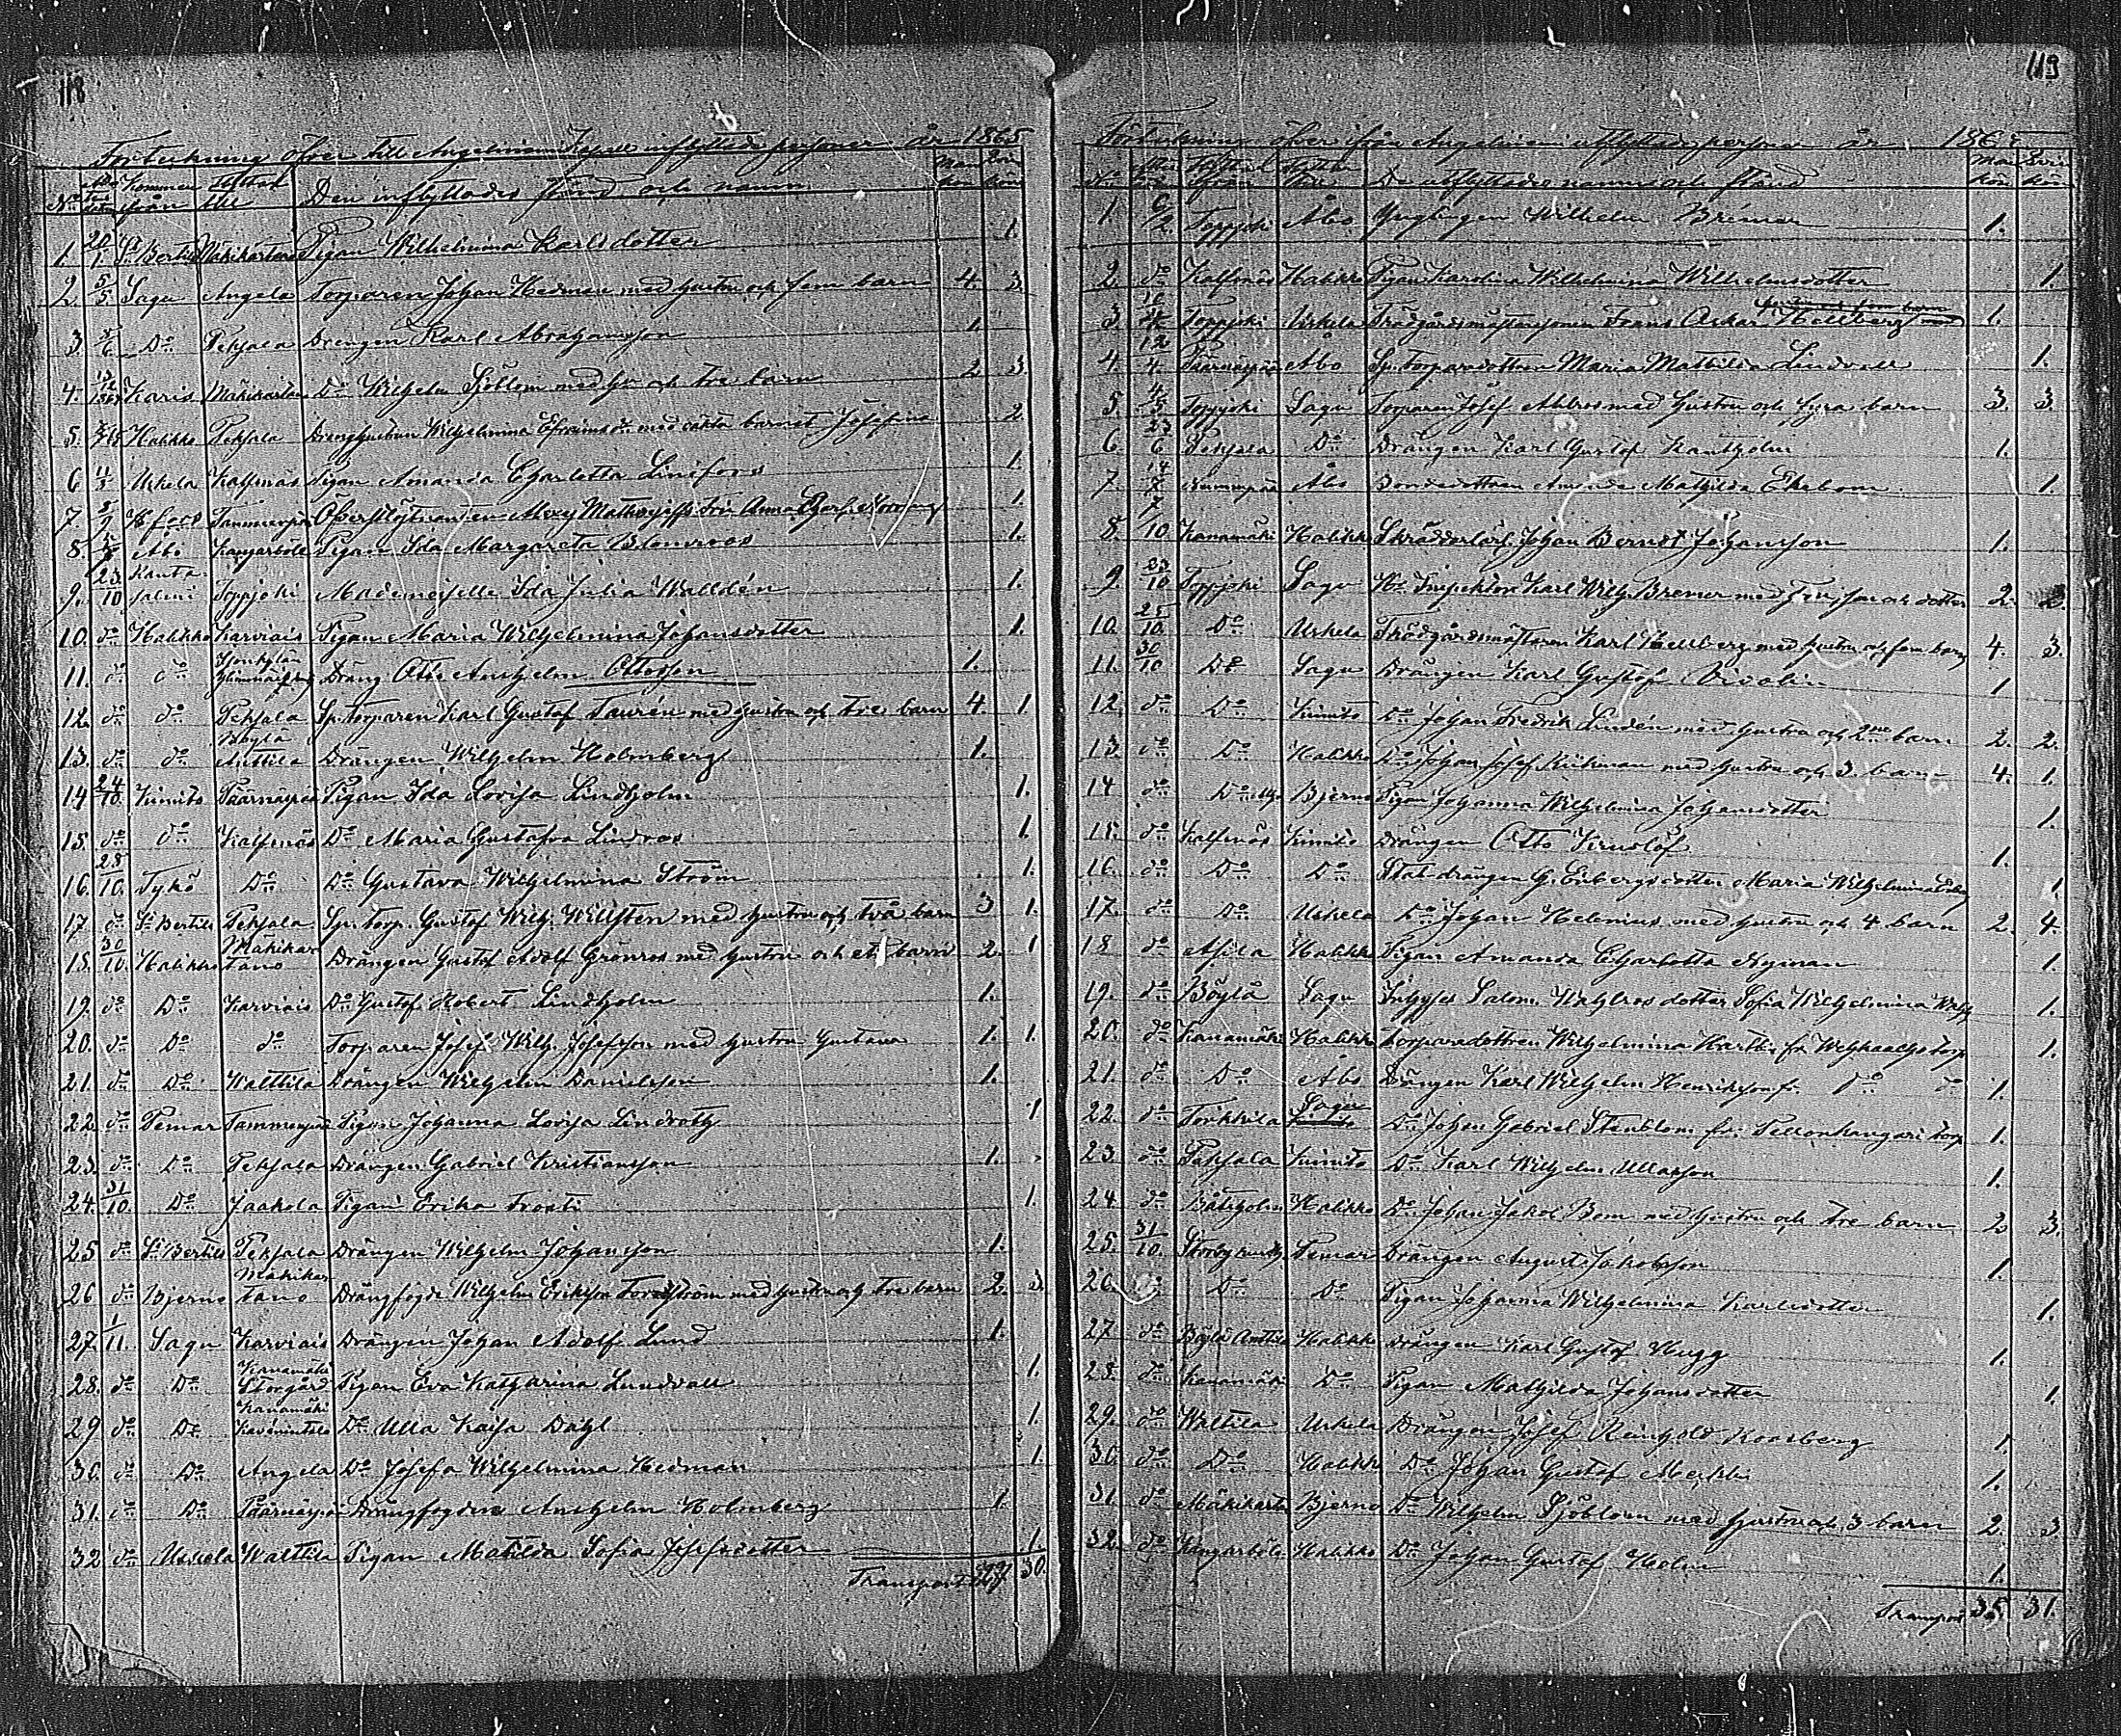 118
Förteckning öfver till Angelniemi Kapell inflyttade personer år 1865
No Kommer ifrån Flyttat till Den inflyttades stånd och namn Mankön Qvinkön
1. 20/1 St Bertils Mäkikartano Pigan Wilhelmina Karlsdotter 1.
2 5/5 Sagu Angela Torparen Johan Hedman med hustru och fem barn 4. 3.
3. Do Pekjala Drengen Karl Abrahamsson 1.
4. Karis Mäkikartano Do Wilhelm Sjöblom med hu och tre barn 2 3.
5. Halikko Pekjala Drenghustrun Wilhelmina Efraimsdr med oäkta barnet Josefina 2
6 Uskela Kalfsnäs Pigan Amanda Charlotta Linfors 1.
7. H:fors Tammenpää Öfverstlöjtnanden Fru Anna 1.
8. Åbo Kangarböle Pigan Ida Margareta Blomroos 1.
9. 23/10 Kantasalmi Toppjoki Mademoiselle Ida Julia Walldén 1.
10. do Halikko Karviais Pigan Maria Wilhelmina Johansdotter 1.
11. do do Dräng Otto Anshelm Ottosson 1.
12. do do Pekjala Sp. torparen Karl Gustaf Taurén med hustru och tre barn 4. 1.
13. do do Böylä Anttila Drängen Wilhelm Holmberg 1.
14 24/10. Kimito Päärnäspää Pigan Ida Lovisa Lindholm 1.
15. do do Kalfsnäs Do Maria Gustafva Lindroos 1.
16. 28/10. Tykö Do Do Gustava Wilhelmina Ström 1.
17. do St Bertils Pekjala Sp. torp. Gustaf Wilh. Willsten med hustru och två barn 3 1.
18. 30/10. Halikko Mäkikartano Drängen Gustaf Adolf Grönros med hustru och ett barn 2. 1
19. do Do Karviais Do Gustaf Robert Lindholm 1.
20. do Do do Torparen Josef Wilh. Josefsson med hustru Gustava 1. 1.
21. do Do Walttila Drängen Wilhelm Danielsson 1.
22. do Pemar Tammenpää Pigan Johanna Lovisa Lindroth 1
23. do Do Pekjala Drängen Gabriel Kristiansson 1.
24. 31/10. Do Jaakola Pigan Erika Frosti 1.
25 do St Bertils Pekjala Drängen Wilhelm Johansson 1.
26 do Bjerno Mäkikartano Drängfogde Wilhelm Eriksson med hustru och tre barn 2. 3.
27. 1/11. Sagu Karviais Drängen Johan Adolf Lund 1.
28. do Do Kanamäki Storgård Pigan Eva Katharina Lundvall 1.
29 do Do Kanamäki Do Ulla Kaisa Dahl 1.
30. do Do Angela Do Josefa Wilhelmina Hedman 1.
31. do Do Päärnäspää Drängfogden Anshelm Holmberg 1.
32 do Uskela Walttila Pigan Matilda Sofia Josefsdotter 1.
Transport 30.
119
Förteckning öfver ifrån Angelniemi utflyttade personer år 1865
De utflyttades namn och stånd Mankön Qvinkön
1. 6/2. Toppjoki Åbo Ynglingen Wilhelm Bremer 1.
2. do Kalfsnäs Halikko Pigan Karolina Wilhelmina Wilhelmsdotter 1.
3. Toppjoki Uskela Trädgårdsmästaresonen Frans Oskar Hellberg 1.
4. 12/4. Päärnäspää Åbo Sp. torparedottren Maria Mathilda Lindvall 1.
5. 4/5 Toppjoki Sagu Torparen Josef Ahlroos med hustru och fyra barn 3. 3.
6. 23/6 Pekjala Do Drängen Karl Gustaf Hantholm 1.
7. 14/7 Åbo Bondedottren Amanda Mathilda Ekebom 1.
8. 7/10 Kanamäki Halikko Skräddarlärl. Johan Berndt Johansson 1.
9. 23/10 Toppjoki Sagu Hr Inspektor Karl Wilh. Bremer med Fru, son och dotter 2. 2.
10. 25/10. Do Uskela Trädgårdsmästaren Karl Hellberg med hustru och fem barn 4. 3.
11. 30/10 Do Sagu Drängen Karl Gustaf Vivolin 1
12. do Do Kimito Do Johan Fredrik Lindén med hustru och 2ne barn 2. 2.
13. do Do Halikko Do Johan Josef Kükman med hustru och 3. barn 4. 1.
14 do Do Bjerno Pigan Johanna Wilhelmina Johansdotter 1.
15. do Kalfsnäs Kimito Drängen Otto Firuslöf 1.
16. do Do Do Stat-drängen G. Enbergs dotter Maria Wilhelmina 1
17. do Do Uskela Do Johan Helenius med hustru och 4 barn 2. 4.
18 do Asila Halikko Pigan Amanda Charlotta Nyman 1.
19. do Böylä Sagu Inhyses Salom. Wahlros dotter Sofia Wilhelmina 1.
20. do Kanamäki Halikko Torparedottren Wilhelmina Hartti fr. torp 1.
21. do Do Åbo Drängen Karl Wilhelm Henriksson fr. do do 1.
22. do Torkkila Sagu Do Johan Gabriel Stenblom fr. Pellonkangari torp 1.
23. do Pekjala Kimito Do Karl Wilhelm Ullasson 1.
24. do Båtsholm Halikko Do Johan Jakob Bom med hustru och tre barn 2 3.
25. 31/10. Pemar Drängen August Jakobsson 1.
26. do Do Do Pigan Johanna Wilhelmina Karlsdotter 1.
27. do Böylä Anttila Halikko Drängen Karl Gustaf Hugg 1.
28. do Kanamäki Do Pigan Mathilda Johansdotter 1.
29. do Walttila Uskela Drängen Josef Reinhold Roosberg 1.
30. do Do Halikko Do Johan Gustaf 1.
31. do Mäkikartano Bjerno Do Wilhelm Sjöblom med hustru och 3 barn 2. 3
32. do Kangarböle Halikko Do Johan Gustaf Holm 1.
Transport 35. 31.